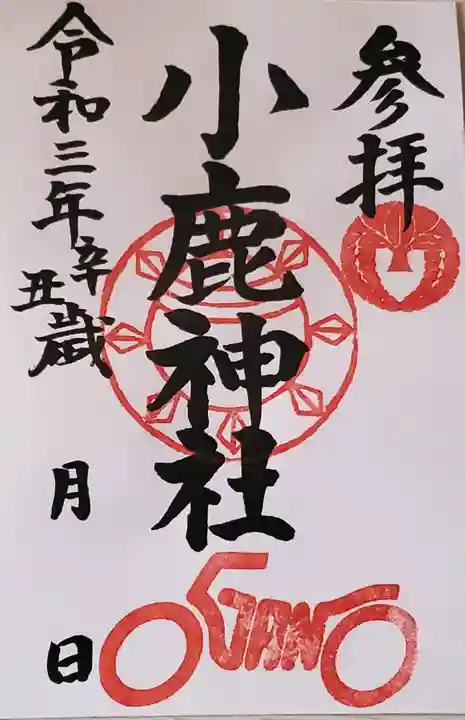 参拝
小鹿神社
令和三年辛丑歳
月
日
OGANO